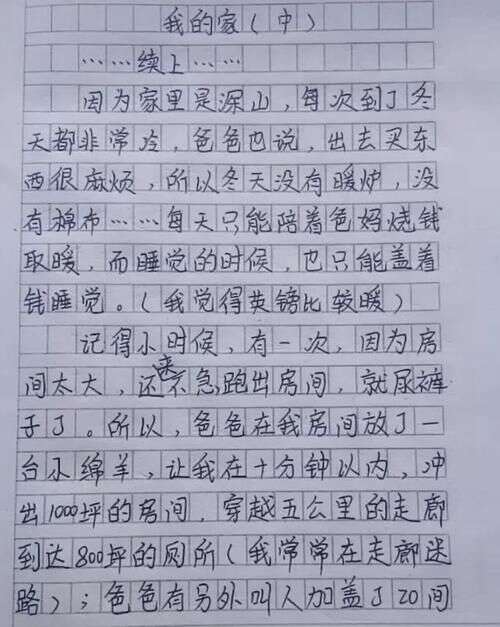 我的家(中)
……续上……
因为家里是深山，每次到了冬
天都非常冷，爸爸也说，出去买东
西很麻烦，所以冬天没有暖炉，没
有棉布……每天只能陪着爸妈烧钱
取暖，而睡觉的时候，也只能盖着
钱睡觉。(我觉得英镑比较暖)
记得小时候，有一次，因为房
间太大，还来不急跑出房间，就尿裤
子了。所以，爸爸在我房间放了一
台小绵羊，让我在十分钟以内，冲
出1000坪的房间，穿越五公里的走廊
到达800坪的厕所(我常常在走廊迷
路)；爸爸有另外叫人加盖了20间